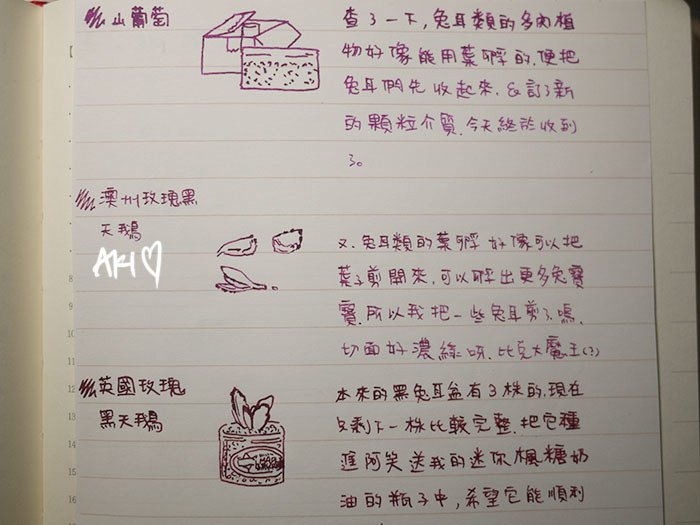 山葡萄
查了一下，兔耳類的多肉植
物好像能用葉孵的，便把
兔耳們先收起來，&訂了新
的顆粒介質，今天終於收到
了。
澳州玫瑰黑
天鵝
AKI
又，兔耳類的葉孵好像可以把
葉子剪開來，可以孵出更多兔寶
寶，所以我把一些兔耳剪了嗚，
切面好濃綠呀，比克大魔王(?)
英國玫瑰
黑天鵝
本來的黑兔耳盆有3株的，現在
只剩下一株比較完整，把它種
進阿笑送我的迷你楓糖奶
油的瓶子中，希望它能順利
8
9
10
11
12
13
14
15
16